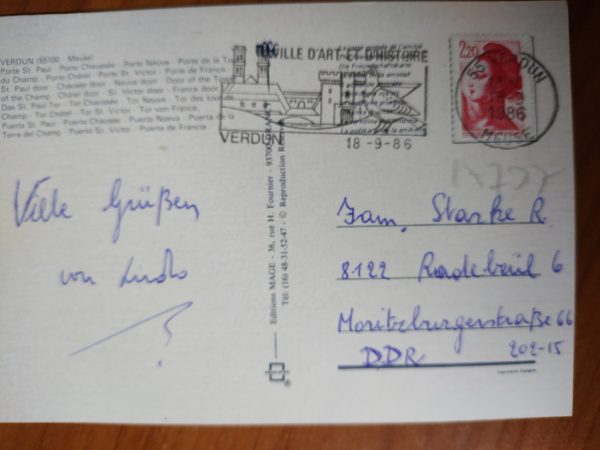 VERDUN (55100 - Meuse)
Porte St. Paul - Porte Chaussée - Porte Neuve - Porte de la Tour
du Champ - Porte Châtel - Porte St. Victor - Porte de France
St. Paul door - Chaussée door - Neuve door - Door of the Tower
of the Champ - Châtel door - St. Victor door - France door
Das St. Paul Tor - Tor Chaussée - Tor Neuve - Tor des tour de
Champ - Tor Châtel - Tor St. Victor - Tor von Francia
Puerta St. Paul - Puerta Chaussée - Puerta Nueva - Puerta de la
Torre del Champ - Puerta St. Victor - Puerta de Francia
VILLE D'ART ET D'HISTOIRE
VERDUN
18-9-86
2,20
55 VERDUN
1986
MEUSE
Viele Grüßen
von Ludo
Editions MAGE - 36, rue H. Fournier - 93700
Tél: (16) 48-31-52-47 - © Reproduction
Fam. Starke R.
8122 Radebeul 6
Moritzburgerstraße 66
DDR 202-15